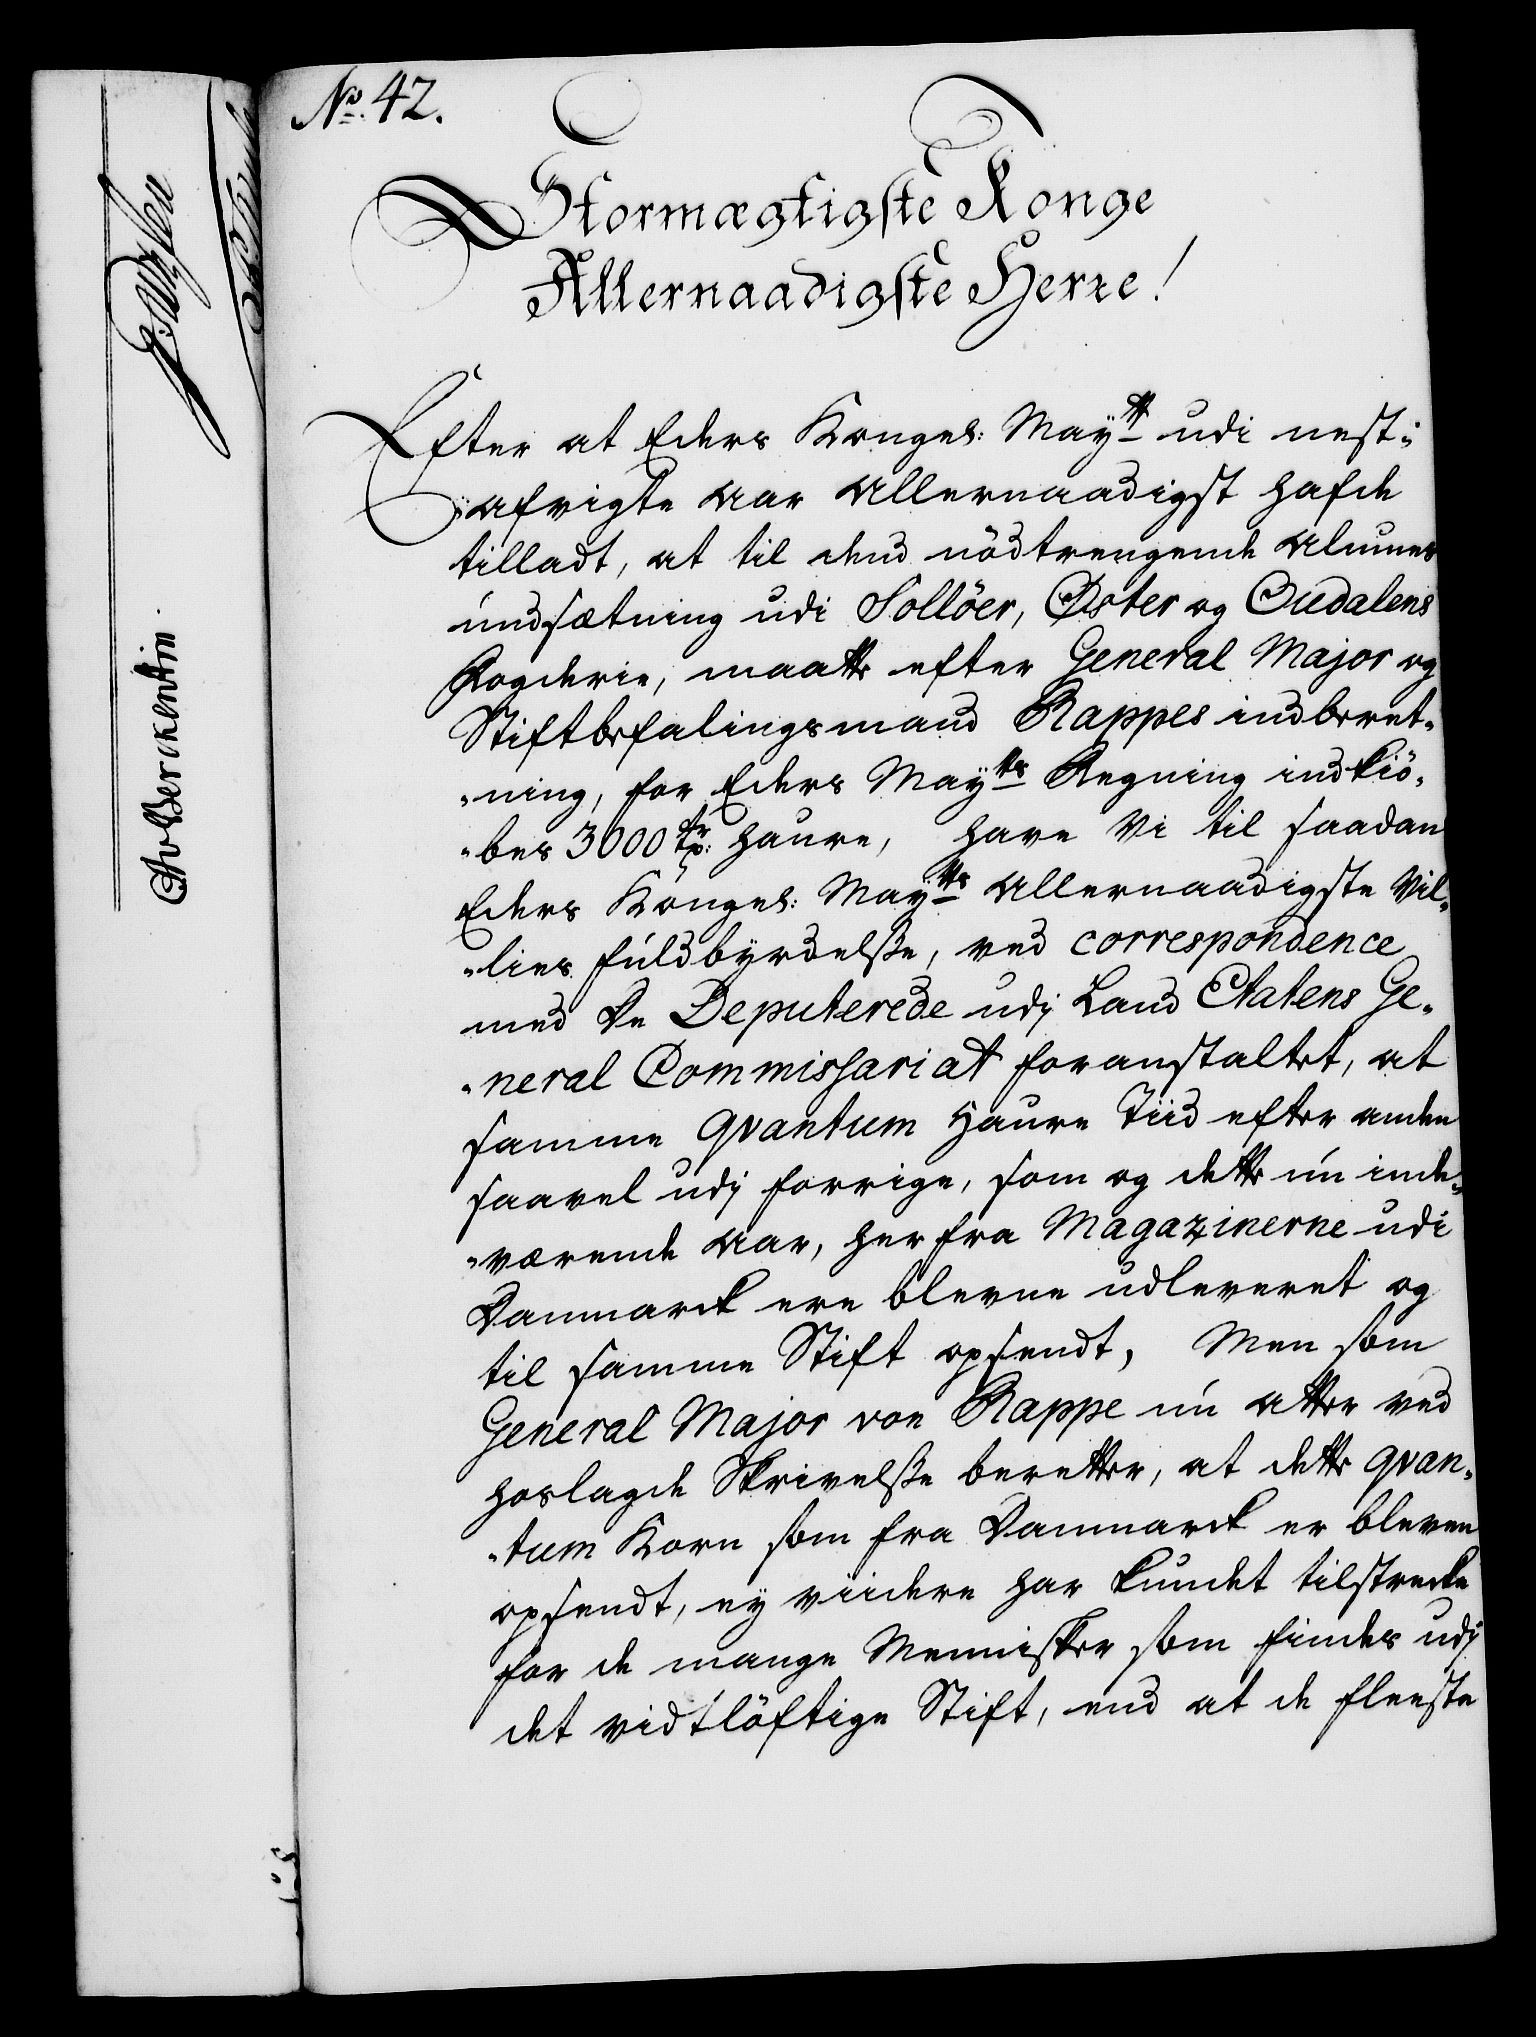 No. 42.
Stormægtigste Konge
Allernaadigste Herre!
Efter at Eders Kongel: Maytt udi nest-
afvigte Aar Allernaadigst hafde
tilladt, at til dend nödtrengende Almues
undsætning udi Sollöer, Øster og Oudalens
Fogderie, maatte efter General Major og
Stiftbefalingsmand Rappes indberet-
-ning, for Eders Maytts Regning indkiö-
-bes 3000 tr: haure, have Vi til saadan
Eders Kongel: Maytts Allernaadigste Vil-
-lies fuldbyrdelsse, ved correspondence
med De Deputerede udj Land Etatens Ge-
-neral Commissariat foranstaltet, at
samme qvantum Haure Tiid efter anden
saavel udj forrige, som og dette nu inde-
-værende Aar, her fra Magazinerne udi
Danmarck ere blevne udleveret og
til samme Stift opsendt, Men som
General Major von Rappe nu atter ved
hoslagde Skrivelsse beretter, at dette qvan-
-tum Korn som fra Danmarck er bleven
opsendt, ey viidere har kundet tilstrecke
for de mange Mennisker som findes udj
det vidtlöftige Stift, end at de fleeste
Berckentin